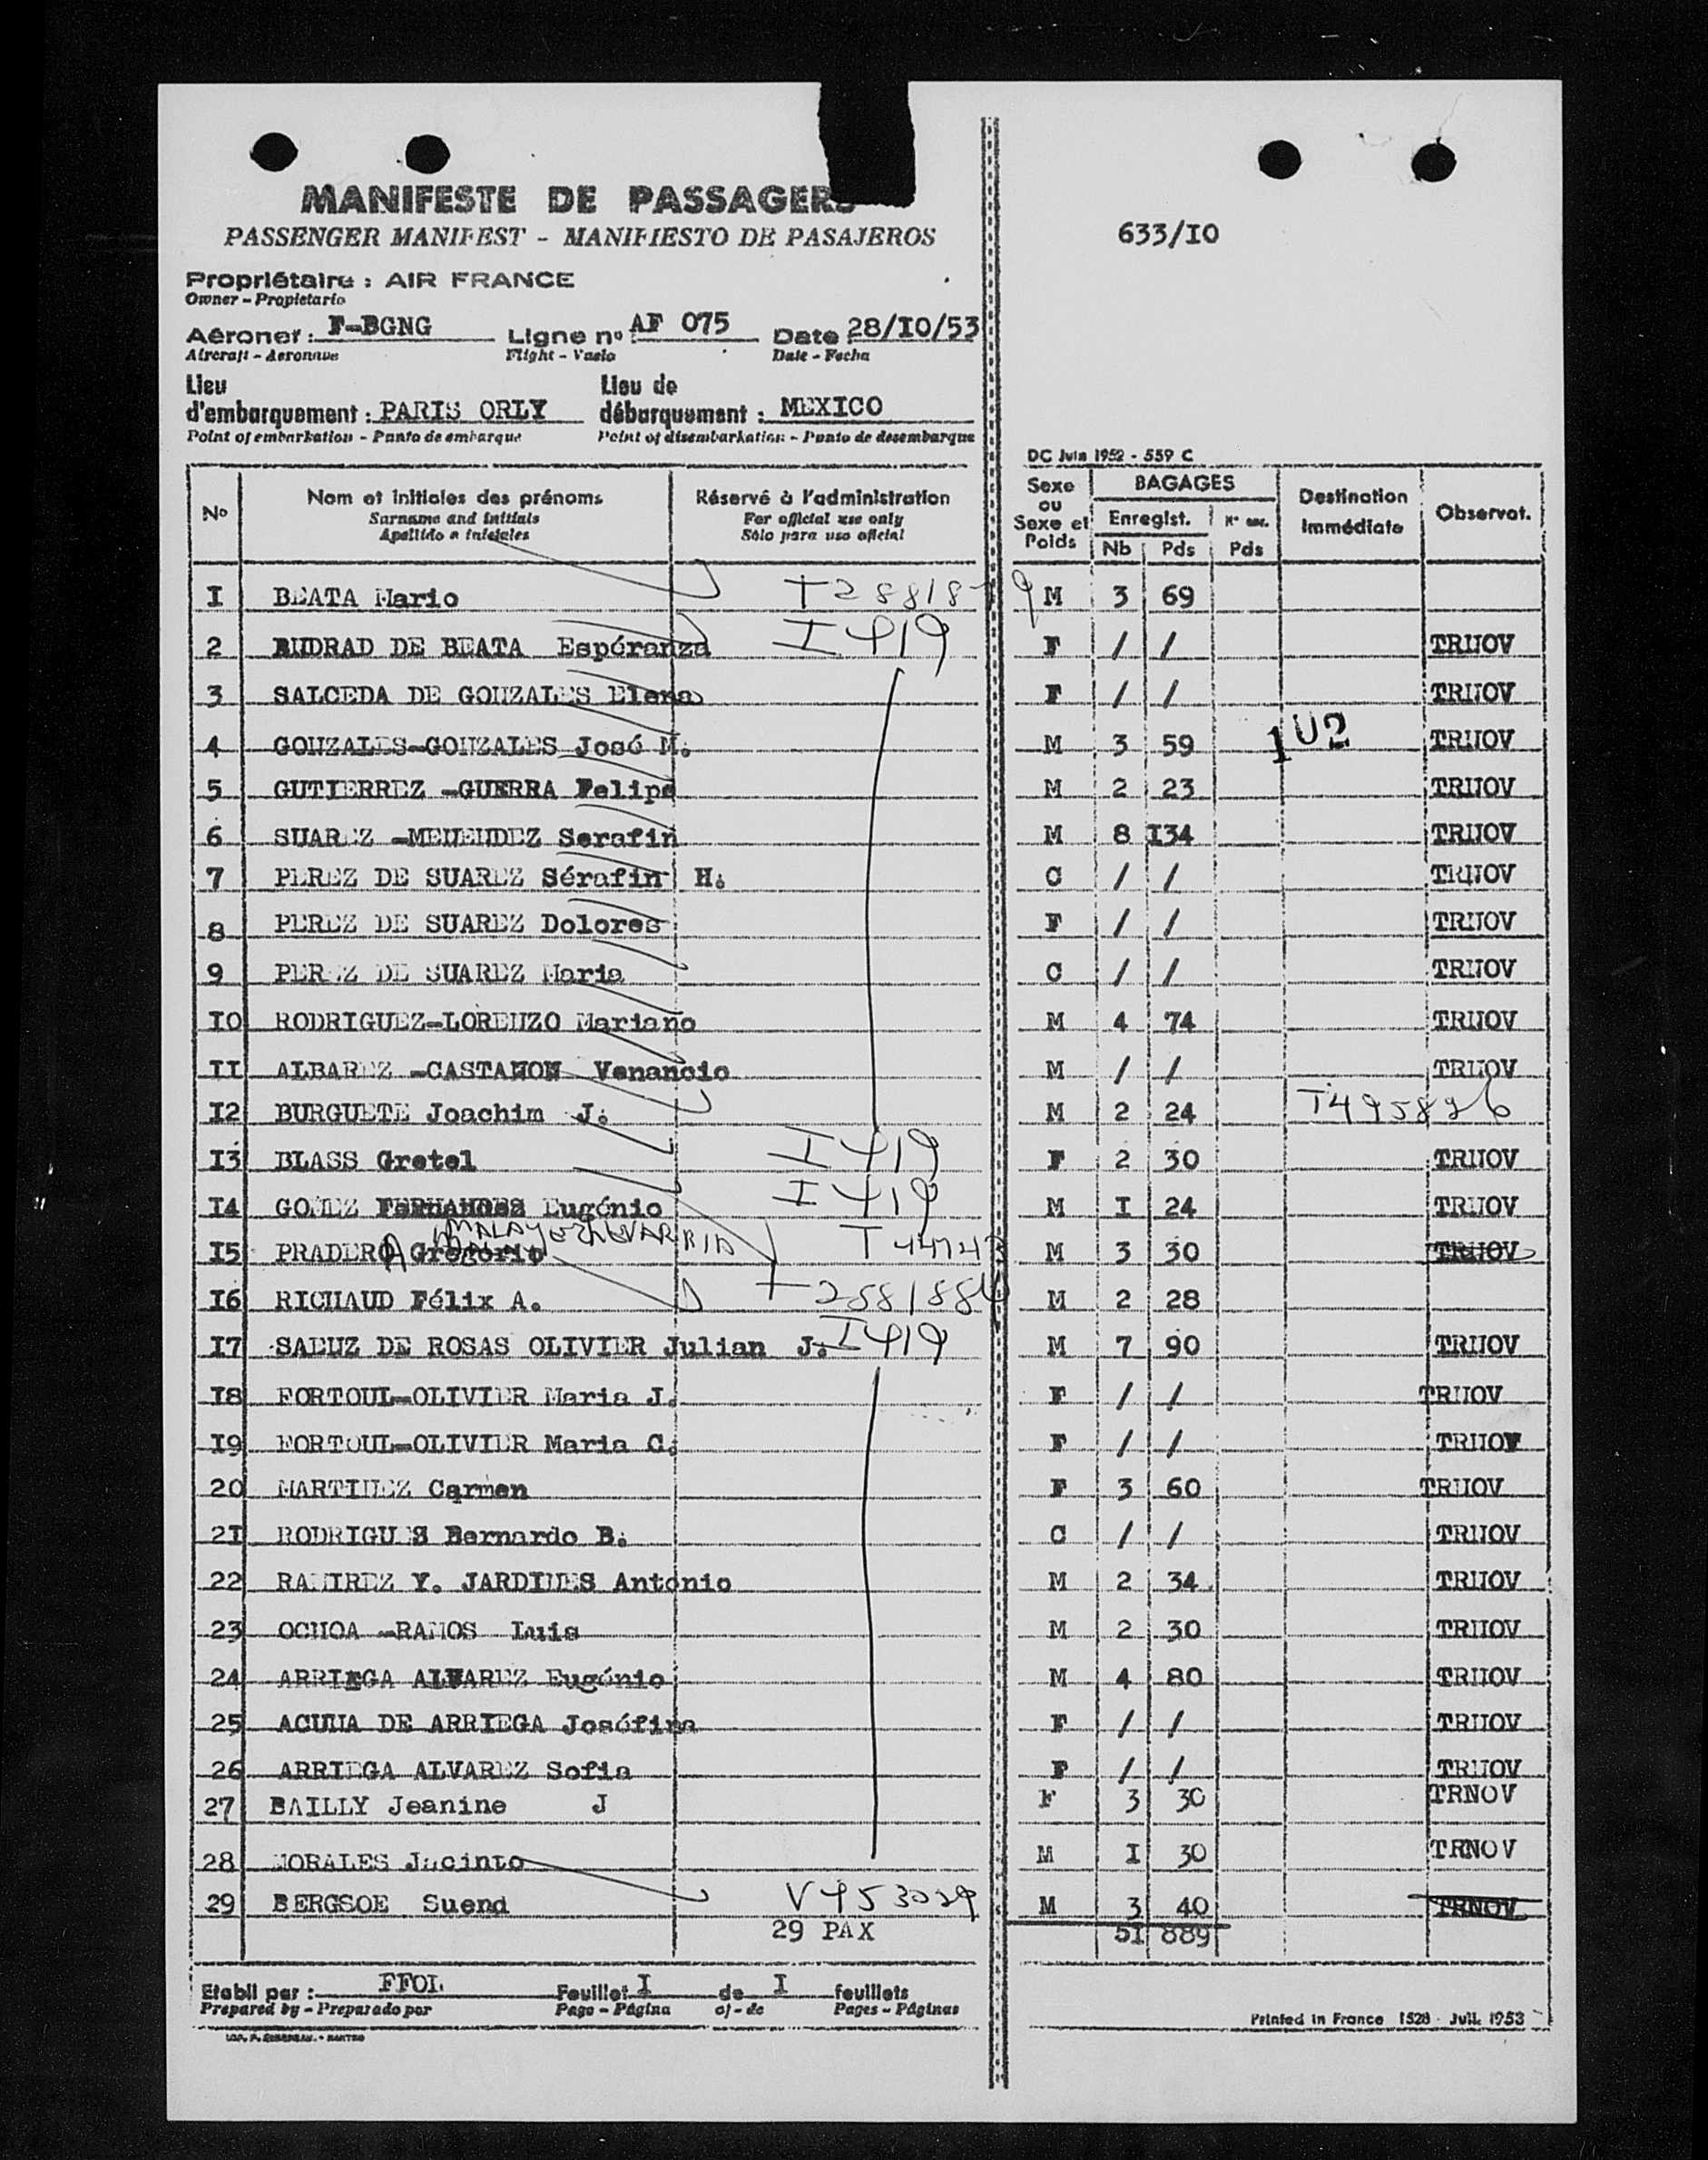 MANIFESTE DE PASSAGERS
PASSENGER MANIFEST - MANIFIESTO DE PASAJEROS
633/IO
Propriétaire : AIR FRANCE
Owner - Propietario
Aéronef : F-BGNG Ligne no : AF 075 Date : 28/IO/53
Aircraft - Aeronave Flight - Vuelo Date - Fecha
Lieu d'embarquement : PARIS ORLY Lieu de débarquement : MEXICO
Point of embarkation - Punto de embarque Point of disembarkation - Punto de desembarque
DC Juin 1952 - 559 C
No Nom et initiales des prénoms Réservé à l'administration Sexe ou Sexe et Poids BAGAGES Destination Immédiate Observat.
Surname and initials For official use only Enregist. Nb Pds Pds
Apellido e iniciales Sólo para uso oficial
I BEATA Mario M 3 69
2 DE BEATA Espéranza I 419 F / / TRNOV
3 SALCEDA DE GONZALES Elena F / / TRNOV
4 GONZALES-GONZALES José M. M 3 59 1U2 TRNOV
5 GUTIERREZ -GUERRA Felipe M 2 23 TRNOV
6 SUAREZ -MENENDEZ Serafin M 8 I34 TRNOV
7 PEREZ DE SUAREZ Sérafin H. C / / TRNOV
8 PEREZ DE SUAREZ Dolores F / / TRNOV
9 PEREZ DE SUAREZ Maria C / / TRNOV
IO RODRIGUEZ-LORENZO Mariano M 4 74 TRNOV
II ALBAREZ -CASTANON Venancio M / / TRNOV
I2 BURGUETE Joachim J. M 2 24 T495826
I3 BLASS Gretel I 419 F 2 30 TRNOV
I4 GOMEZ FERNANDES Eugénio I 419 M I 24 TRNOV
I5 PRADERO Gregorio M 3 30 TRNOV
I6 RICHAUD Félix A. M 2 28
I7 SAENZ DE ROSAS OLIVIER Julian J. I 419 M 7 90 TRNOV
I8 FORTOUL-OLIVIER Maria J. F / / TRNOV
I9 FORTOUL-OLIVIER Maria C. F / / TRNOV
20 MARTINEZ Carmen F 3 60 TRNOV
2I RODRIGUES Bernardo B. C / / TRNOV
22 RAMIREZ Y. JARDINES Antonio M 2 34 TRNOV
23 OCHOA -RAMOS Luis M 2 30 TRNOV
24 ARRIEGA ALVAREZ Eugénio M 4 80 TRNOV
25 ACUNA DE ARRIEGA Joséfina F / / TRNOV
26 ARRIEGA ALVAREZ Sofia F / / TRNOV
27 BAILLY Jeanine J F 3 30 TRNOV
28 MORALES Jacinto M I 30 TRNOV
29 BERGSOE Suend V453029 M 3 40 TRNOV
29 PAX 5I 889
Etabli par : FFOL Feuillet I de I feuillets
Prepared by - Preparado por Page - Página of - de Pages - Páginas
Printed in France 1528 - Juil. 1953